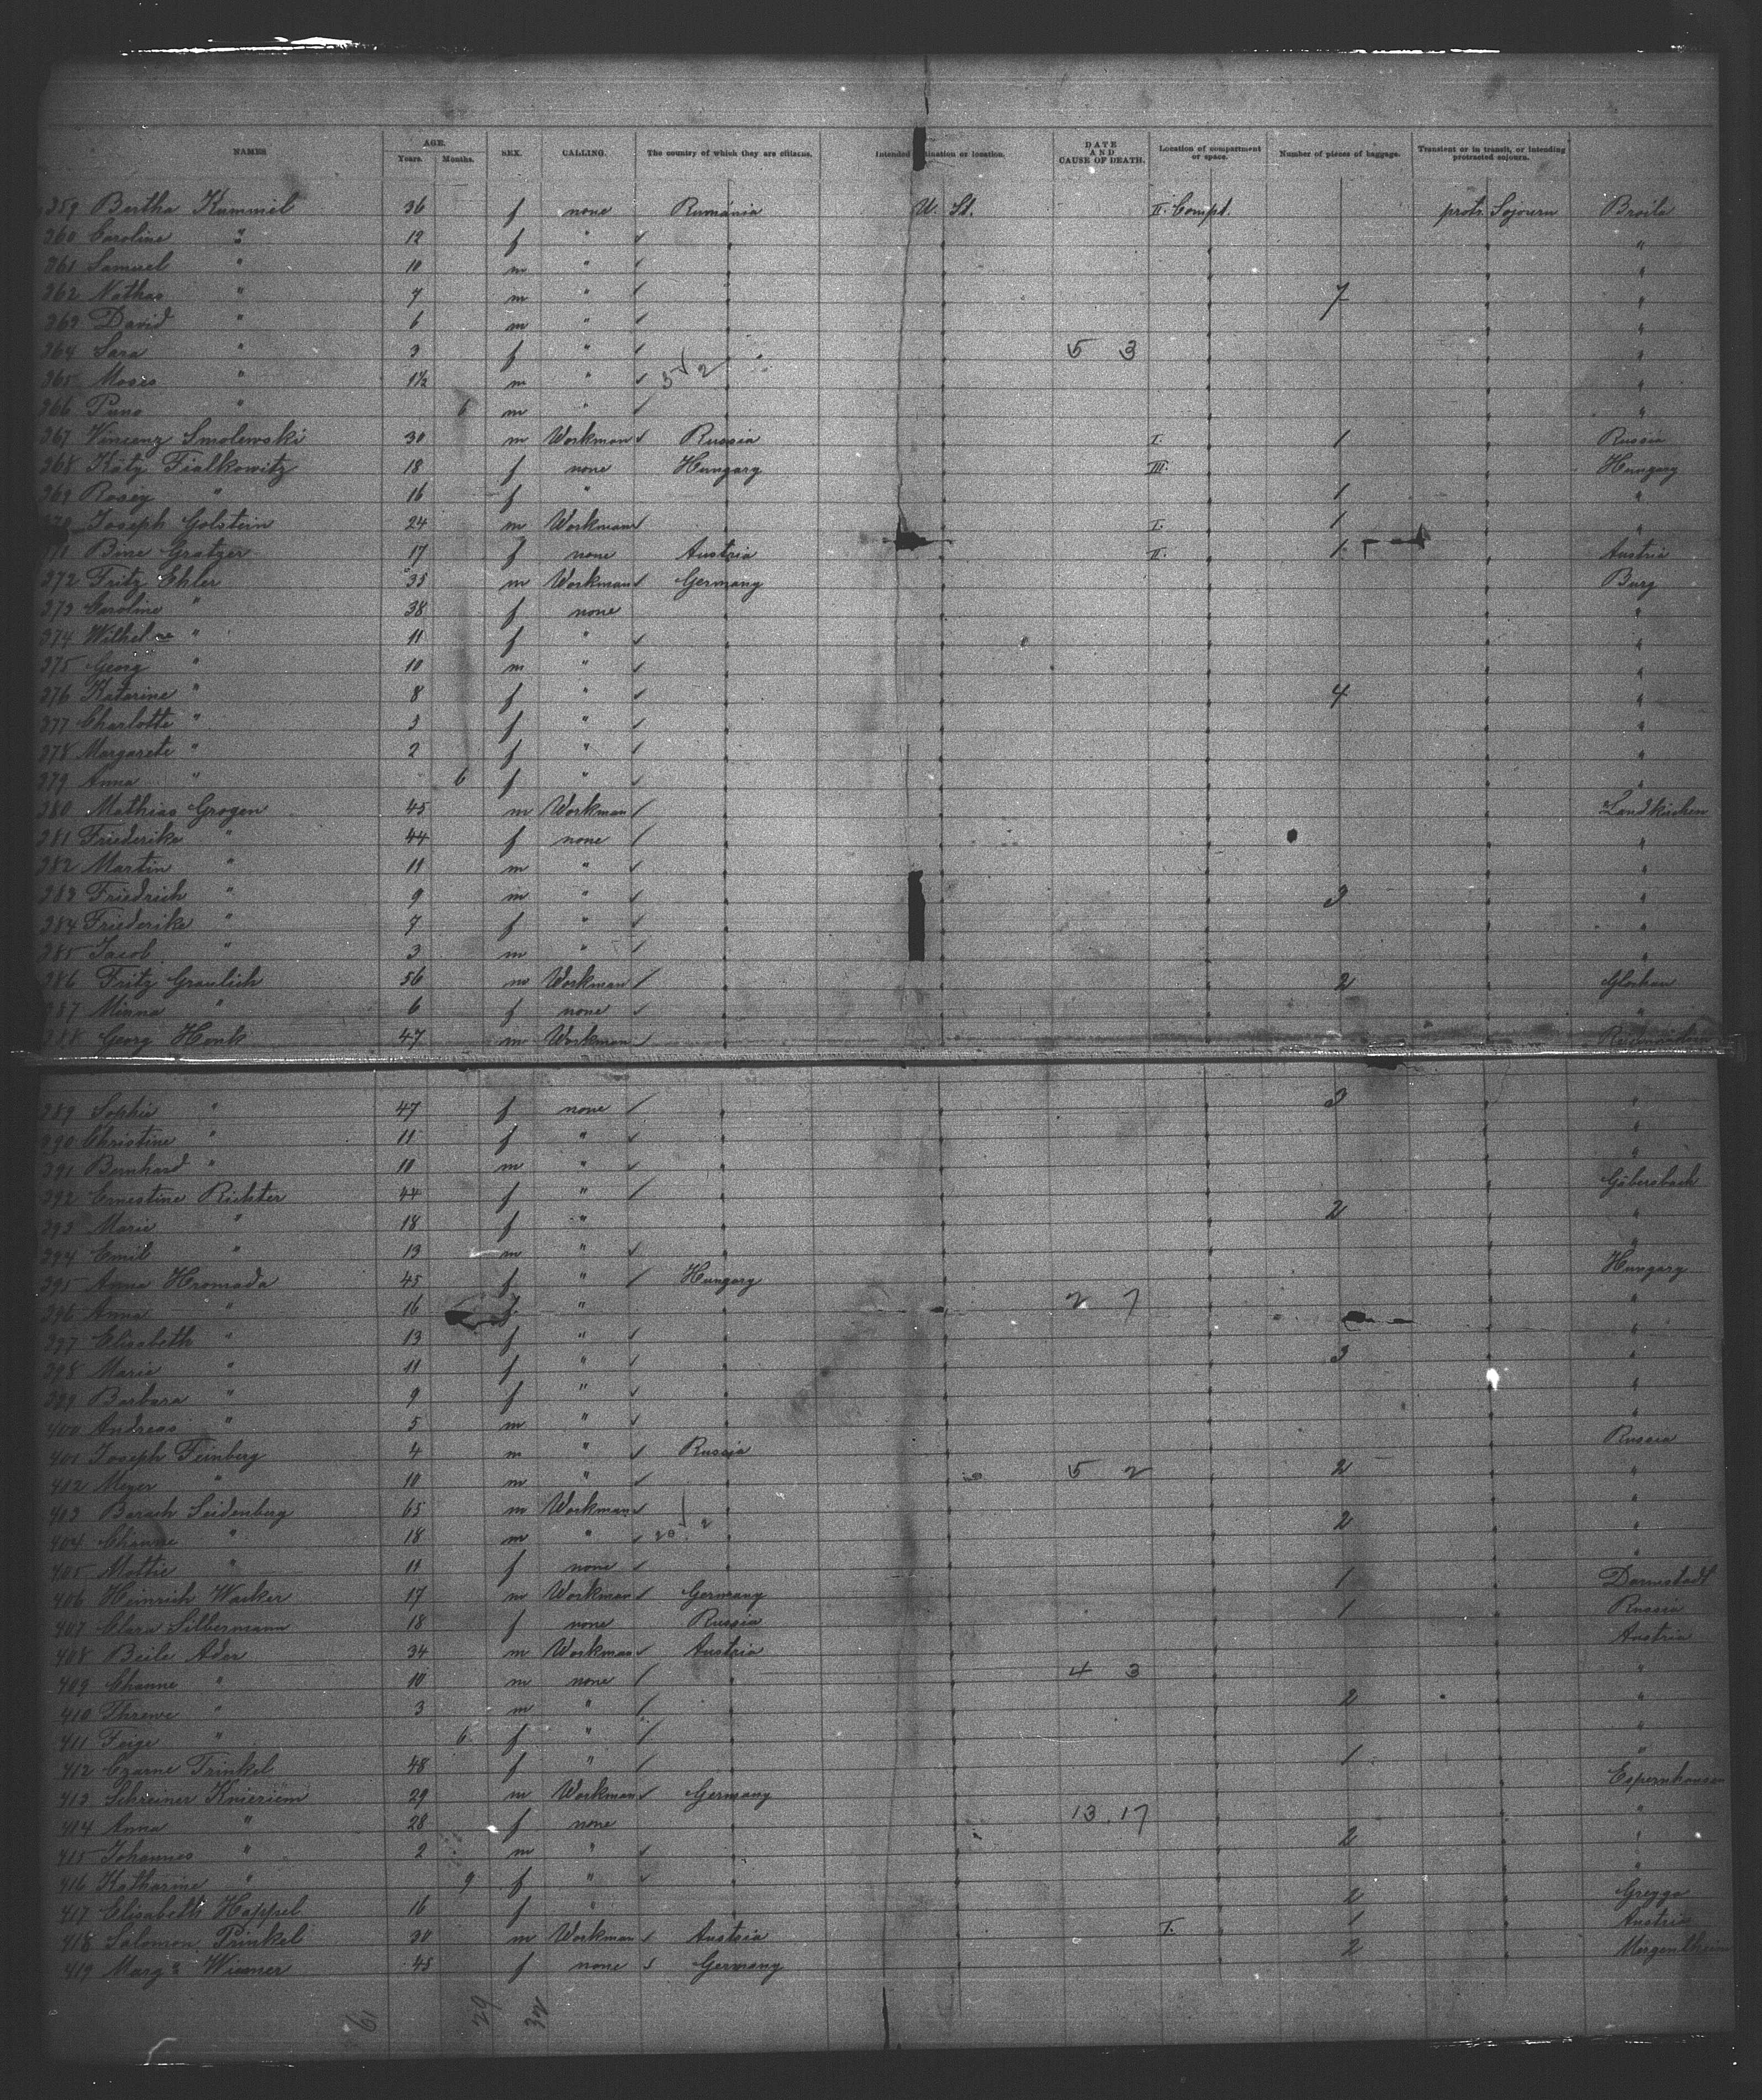 NAMES AGE. Years. Months. SEX. CALLING. The country of which they are citizens. Intended destination or location. DATE AND CAUSE OF DEATH. Location of compartment or space. Number of pieces of baggage. Transient or in transit, or intending protracted sojourn.
359 Bertha Kummel 36 f none Rumania U. St. II. Compt. protr. Sojourn Braila
360 Caroline " 12 f " "
361 Samuel " 10 m " "
362 Nathan " 7 m " 7 "
363 David " 6 m " "
364 Sara " 3 f " 5 3 "
365 Moses " 1½ m " 5 2 "
366 " 6 m " "
367 Vincenz Smolewski 30 m Workman Russia I. 1 Russia
368 Kätz Fialkowitz 18 f none Hungary III. Hungary
369 Rosig " 16 f " 1 "
370 Joseph Golstein 24 m Workman I. 1 "
371 Bine Gratzer 17 f none Austria II. 1 Austria
372 Fritz Ehler 35 m Workman Germany Burg
373 Caroline " 38 f none "
374 " 11 f " "
375 Georg " 10 m " "
376 Katarine " 8 f " 4 "
377 Charlotte " 3 f " "
378 Margarete " 2 f " "
379 Anna " 6 f " "
380 Mathias Grogen 45 m Workman Landkirchen
381 Friederike " 44 f none "
382 Martin " 11 m " "
383 Friedrich " 9 m " 3 "
384 Friederike " 7 f " "
385 Jacob " 3 m " "
386 Fritz Graulich 56 m Workman 2
387 Minna " 6 f none "
388 Georg Henk 47 m Workman
389 Sophie " 47 f none 3 "
390 Christine " 11 f " "
391 Bernhard " 10 m " "
392 Ernestine Richter 44 f " Gäbersbach
393 Marie " 18 f " 2 "
394 Emil " 13 m " "
395 Anna Hromada 45 f " Hungary Hungary
396 Anna " 16 f " 2 7 "
397 Elisabeth " 13 f " "
398 Marie " 11 f " 3 "
399 Barbara " 9 f " "
400 Andreas " 5 m " "
401 Joseph Feinberg 4 m " Russia Russia
402 Meyer " 10 m " 5 2 2 "
403 Barach Seidenberg 65 m Workman "
404 Channe " 18 m " 20 2 2 "
405 Mottie " 11 f none "
406 Heinrich Wacker 17 m Workman Germany 1 Darmstadt
407 Clara Silbermann 18 f none Russia 1 Russia
408 Beile Ader 34 m Workman Austria Austria
409 Channe " 10 m none 4 3 "
410 " 3 m " 2 "
411 Feige " 6 f " "
412 Czarne Trinkel 48 f " 1 "
413 Schreiner Knieriem 29 m Workman Germany
414 Anna " 28 f none 13.17 "
415 Johannes " 2 m " 2 "
416 Katharine " 9 f " "
417 Elisabeth Happel 16 f " 2
418 Salomon Trinkel 30 m Workman Austria I. 1 Austria
419 Marg Wiemer 45 f none Germany 2 Mergentheim
61 29 32